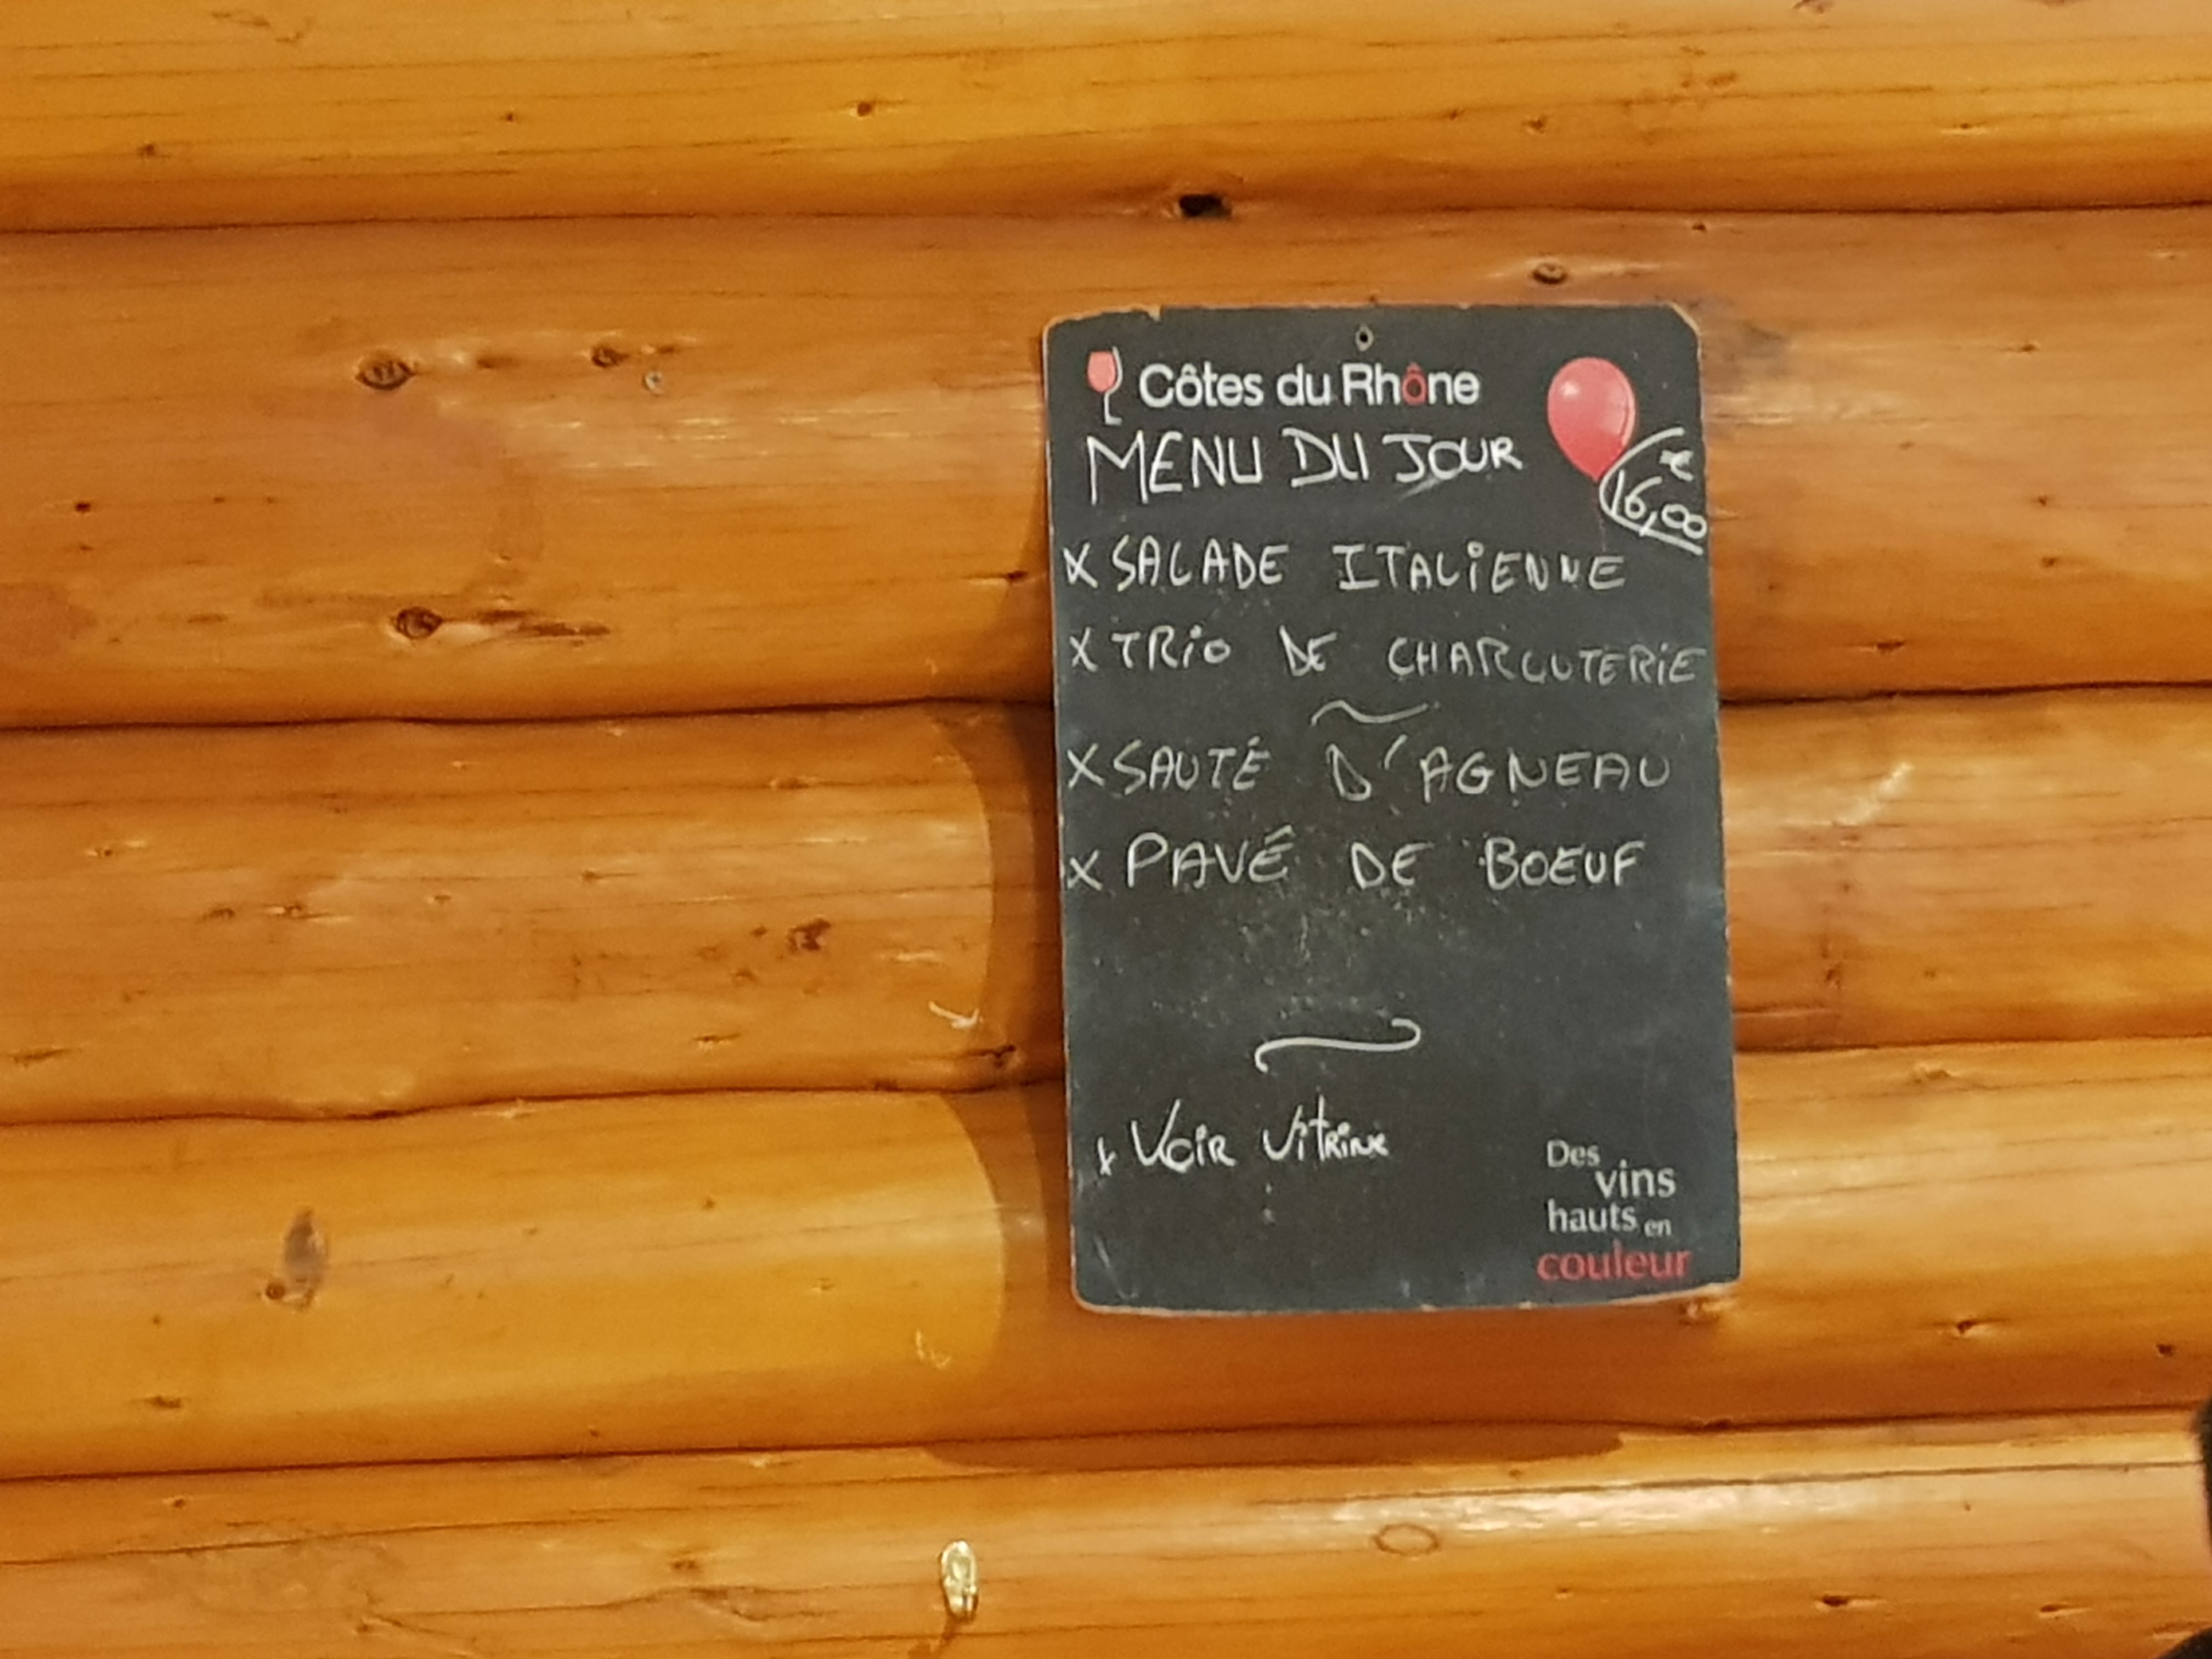 Côtes du Rhône
MENU DU JOUR
€
16,00
x SALADE ITALiENNE
x TRiO DE CHARCUTERiE
~
x SAUTÉ D'AGNEAU
x PAVÉ DE BOEUF
~
x Voir Vitrine
Des
vins
hauts en
couleur